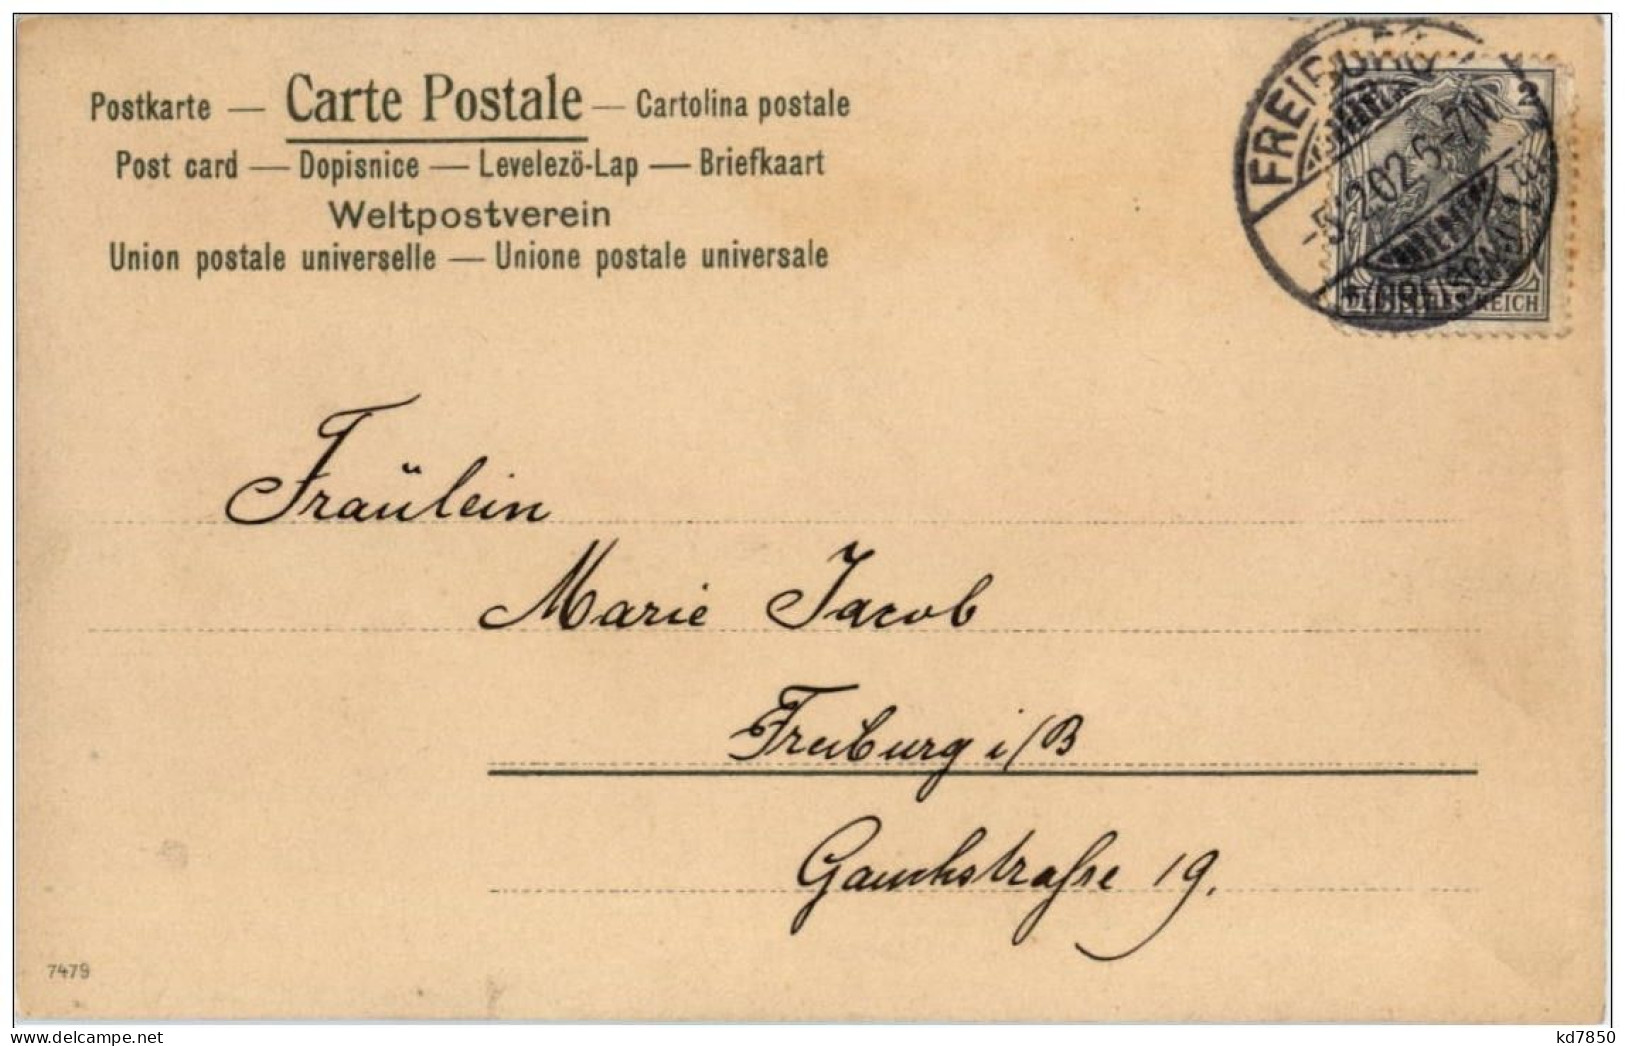 Postkarte — Carte Postale — Cartolina postale
Post card — Dopisnice — Levelezö-Lap — Briefkaart
Weltpostverein
Union postale universelle — Unione postale universale
FREIBURG
2
-5.2.02.6-7N.
(BREISGAU)
DEUTSCHES REICH
Fräulein
Marie Jacob
Freiburg i/B
Gauchstraße 19.
7479
www.delcampe.net
kd7850